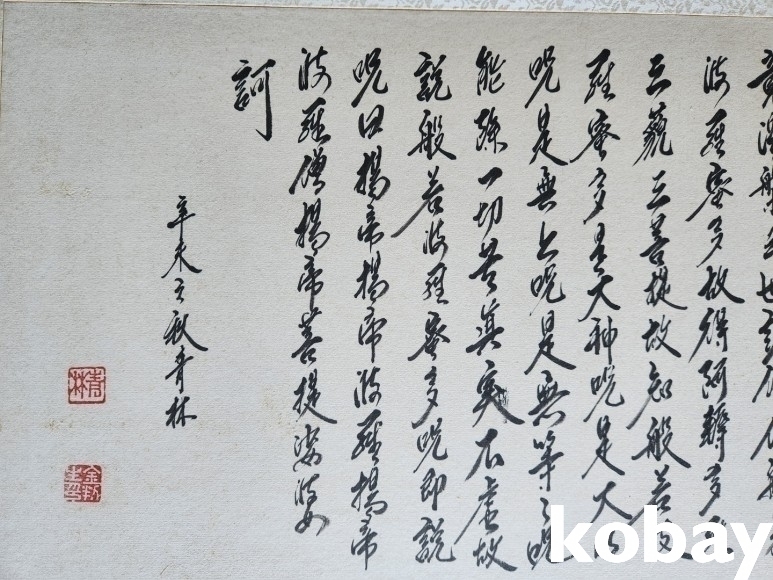 竟涅槃三世諸佛依般
波羅蜜多故得阿耨多羅
三藐三菩提故知般若波
羅蜜多是大神呪是大明
呪是無上呪是無等々呪
能除一切苦真實不虛故
說般若波羅蜜多呪即說
呪曰揭帝揭帝波羅揭帝
波羅僧揭帝菩提娑婆
訶
辛未之秋青林
青林
kobay